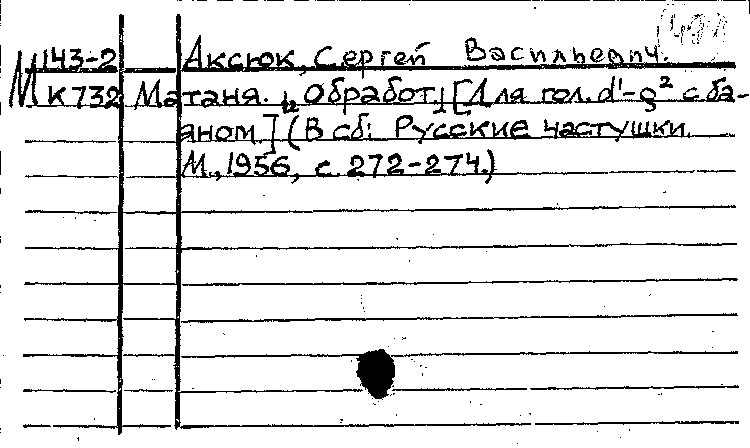 М 143-2 Аксюк, Сергей Васильевич.
К 732 Матаня. Обработ. [Для гол. d'-g² с ба-
яном.] (В сб: Русские частушки.
М., 1956, с. 272-274.)